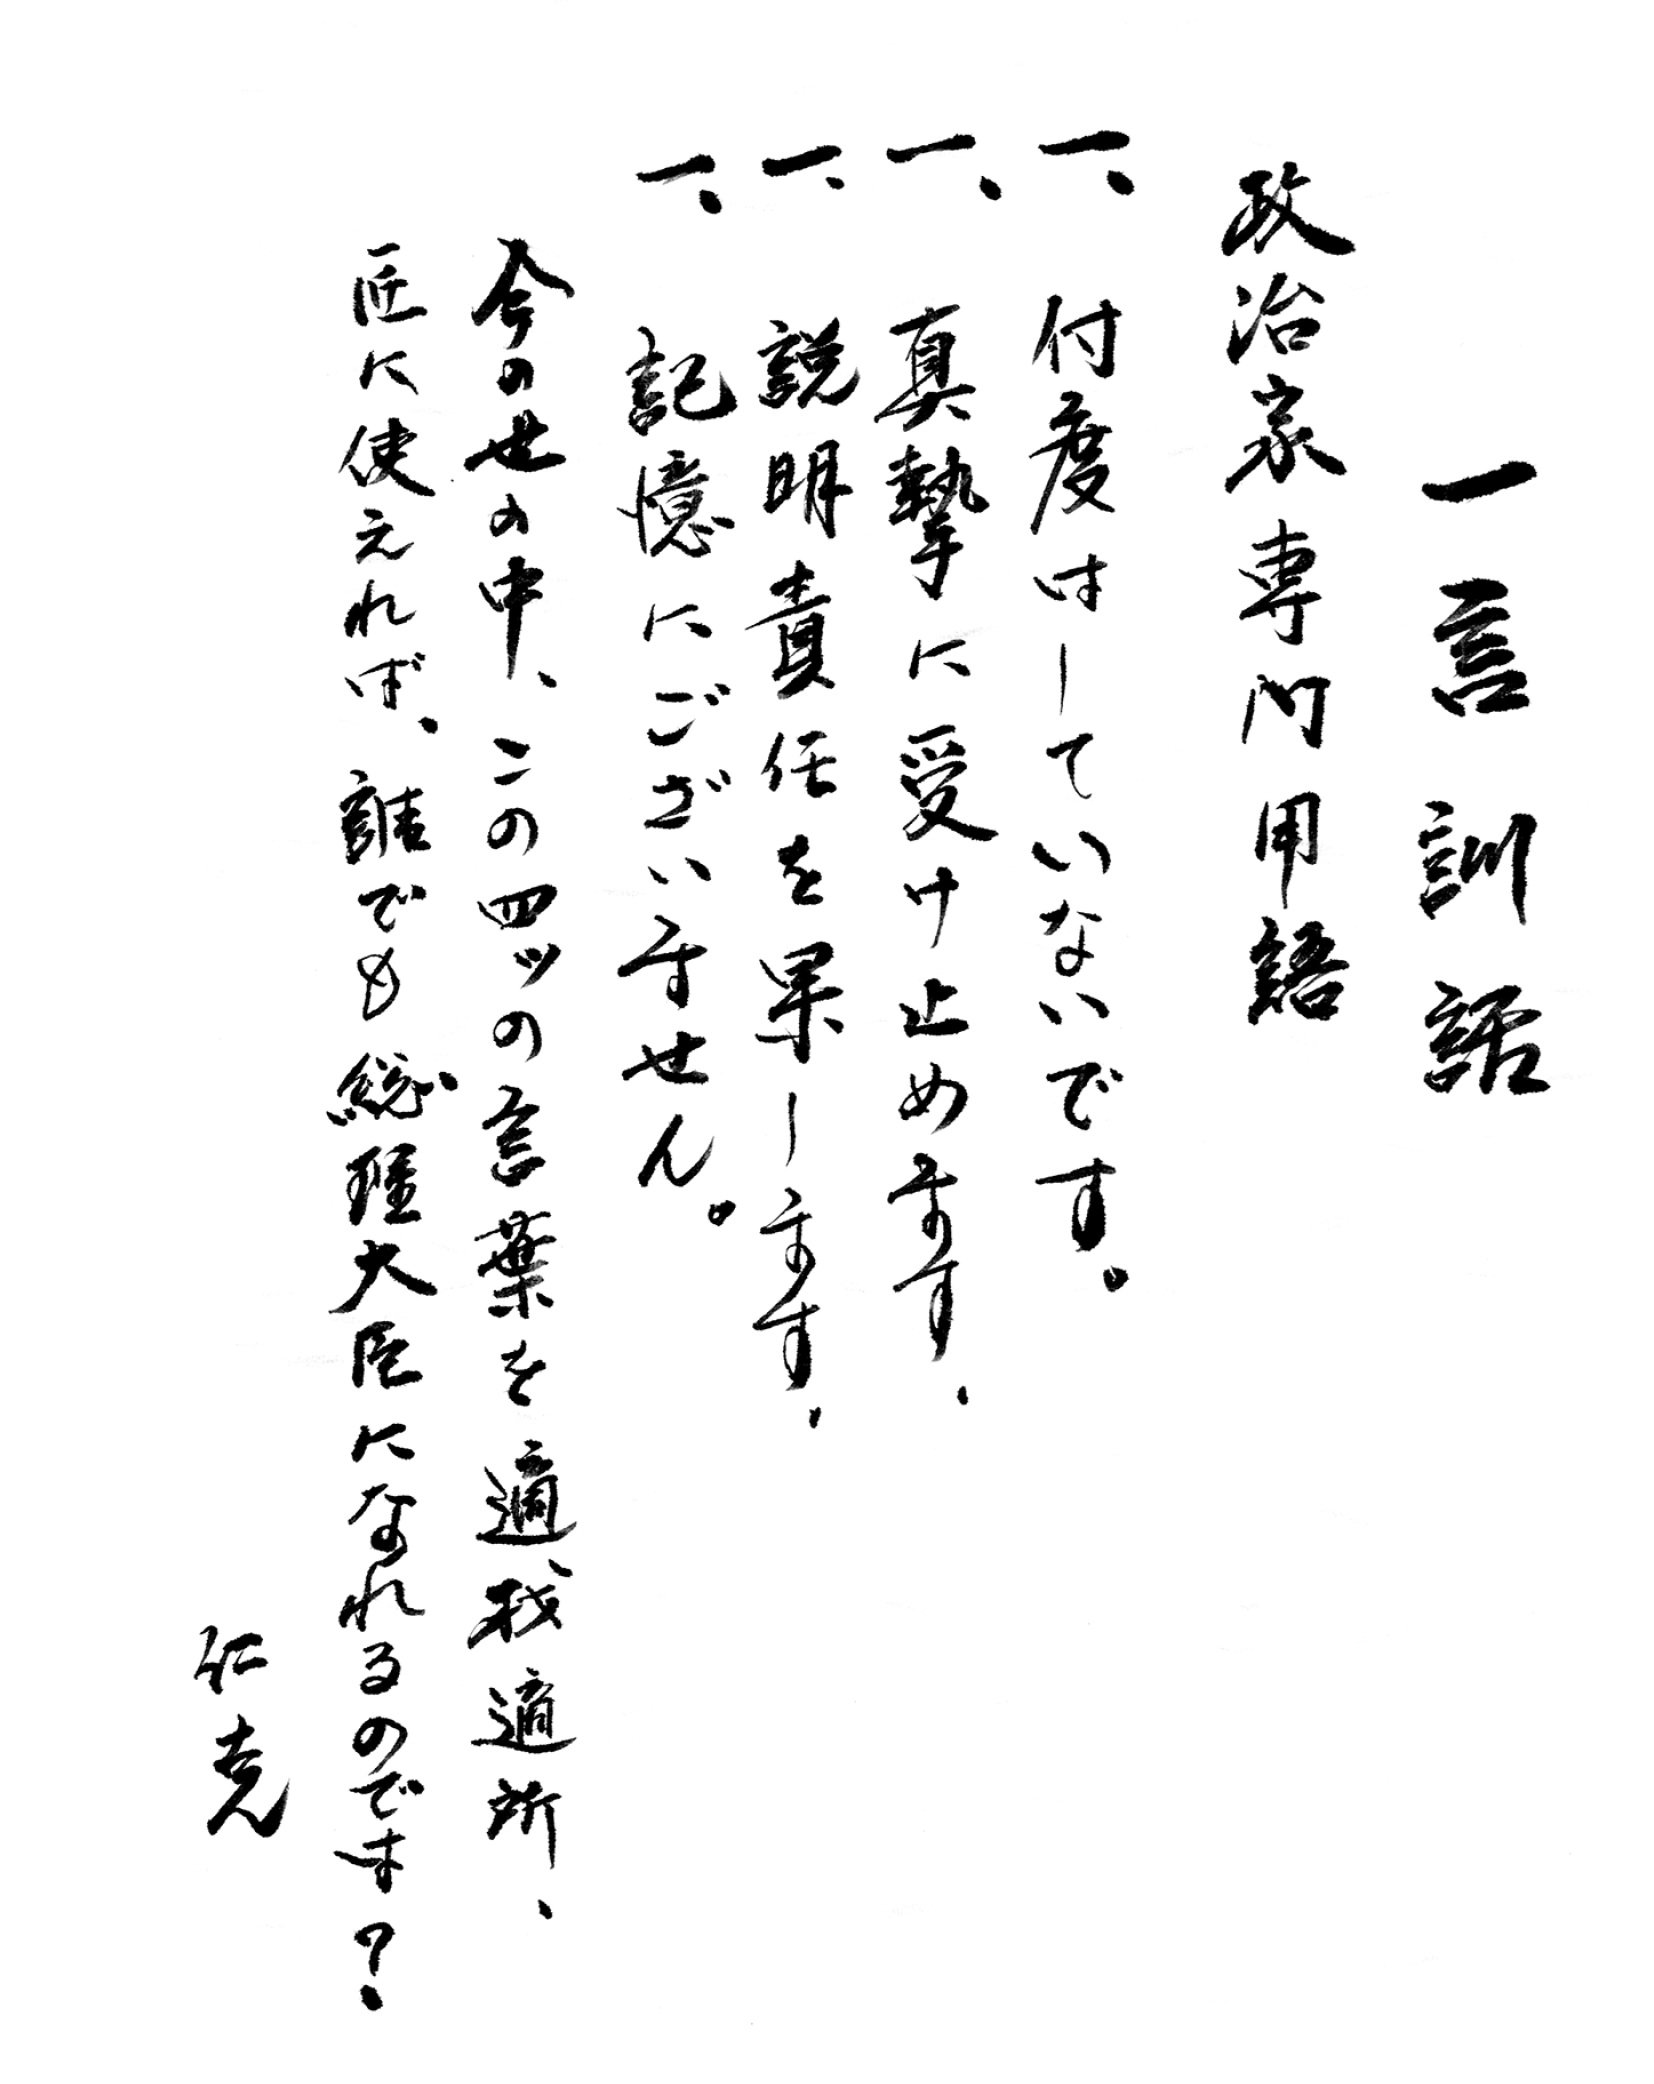 一言訓話
政治家専門用語
一、付度はしていないです。
一、真摯に受け止めます。
一、説明責任を果します。
一、記憶にございません。
今の世の中、この四ッの言葉を適材適所、
匠に使えれば、誰でも総理大臣になれるのです?
仁克